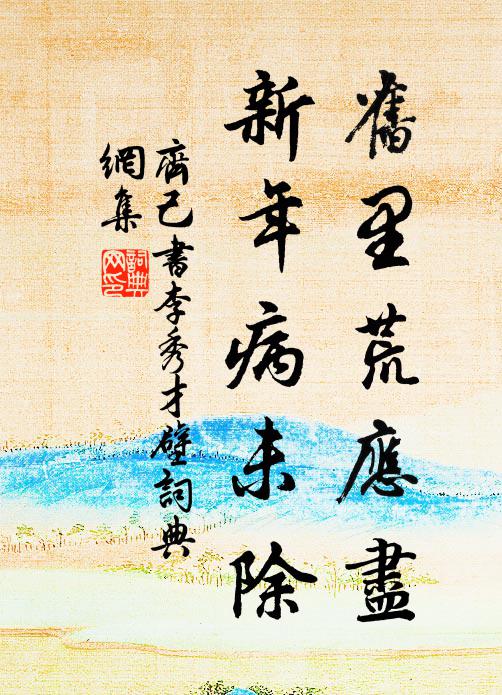 舊里荒應盡
新年病未除
齊己書李秀才壁詞典
網集
詞典網印